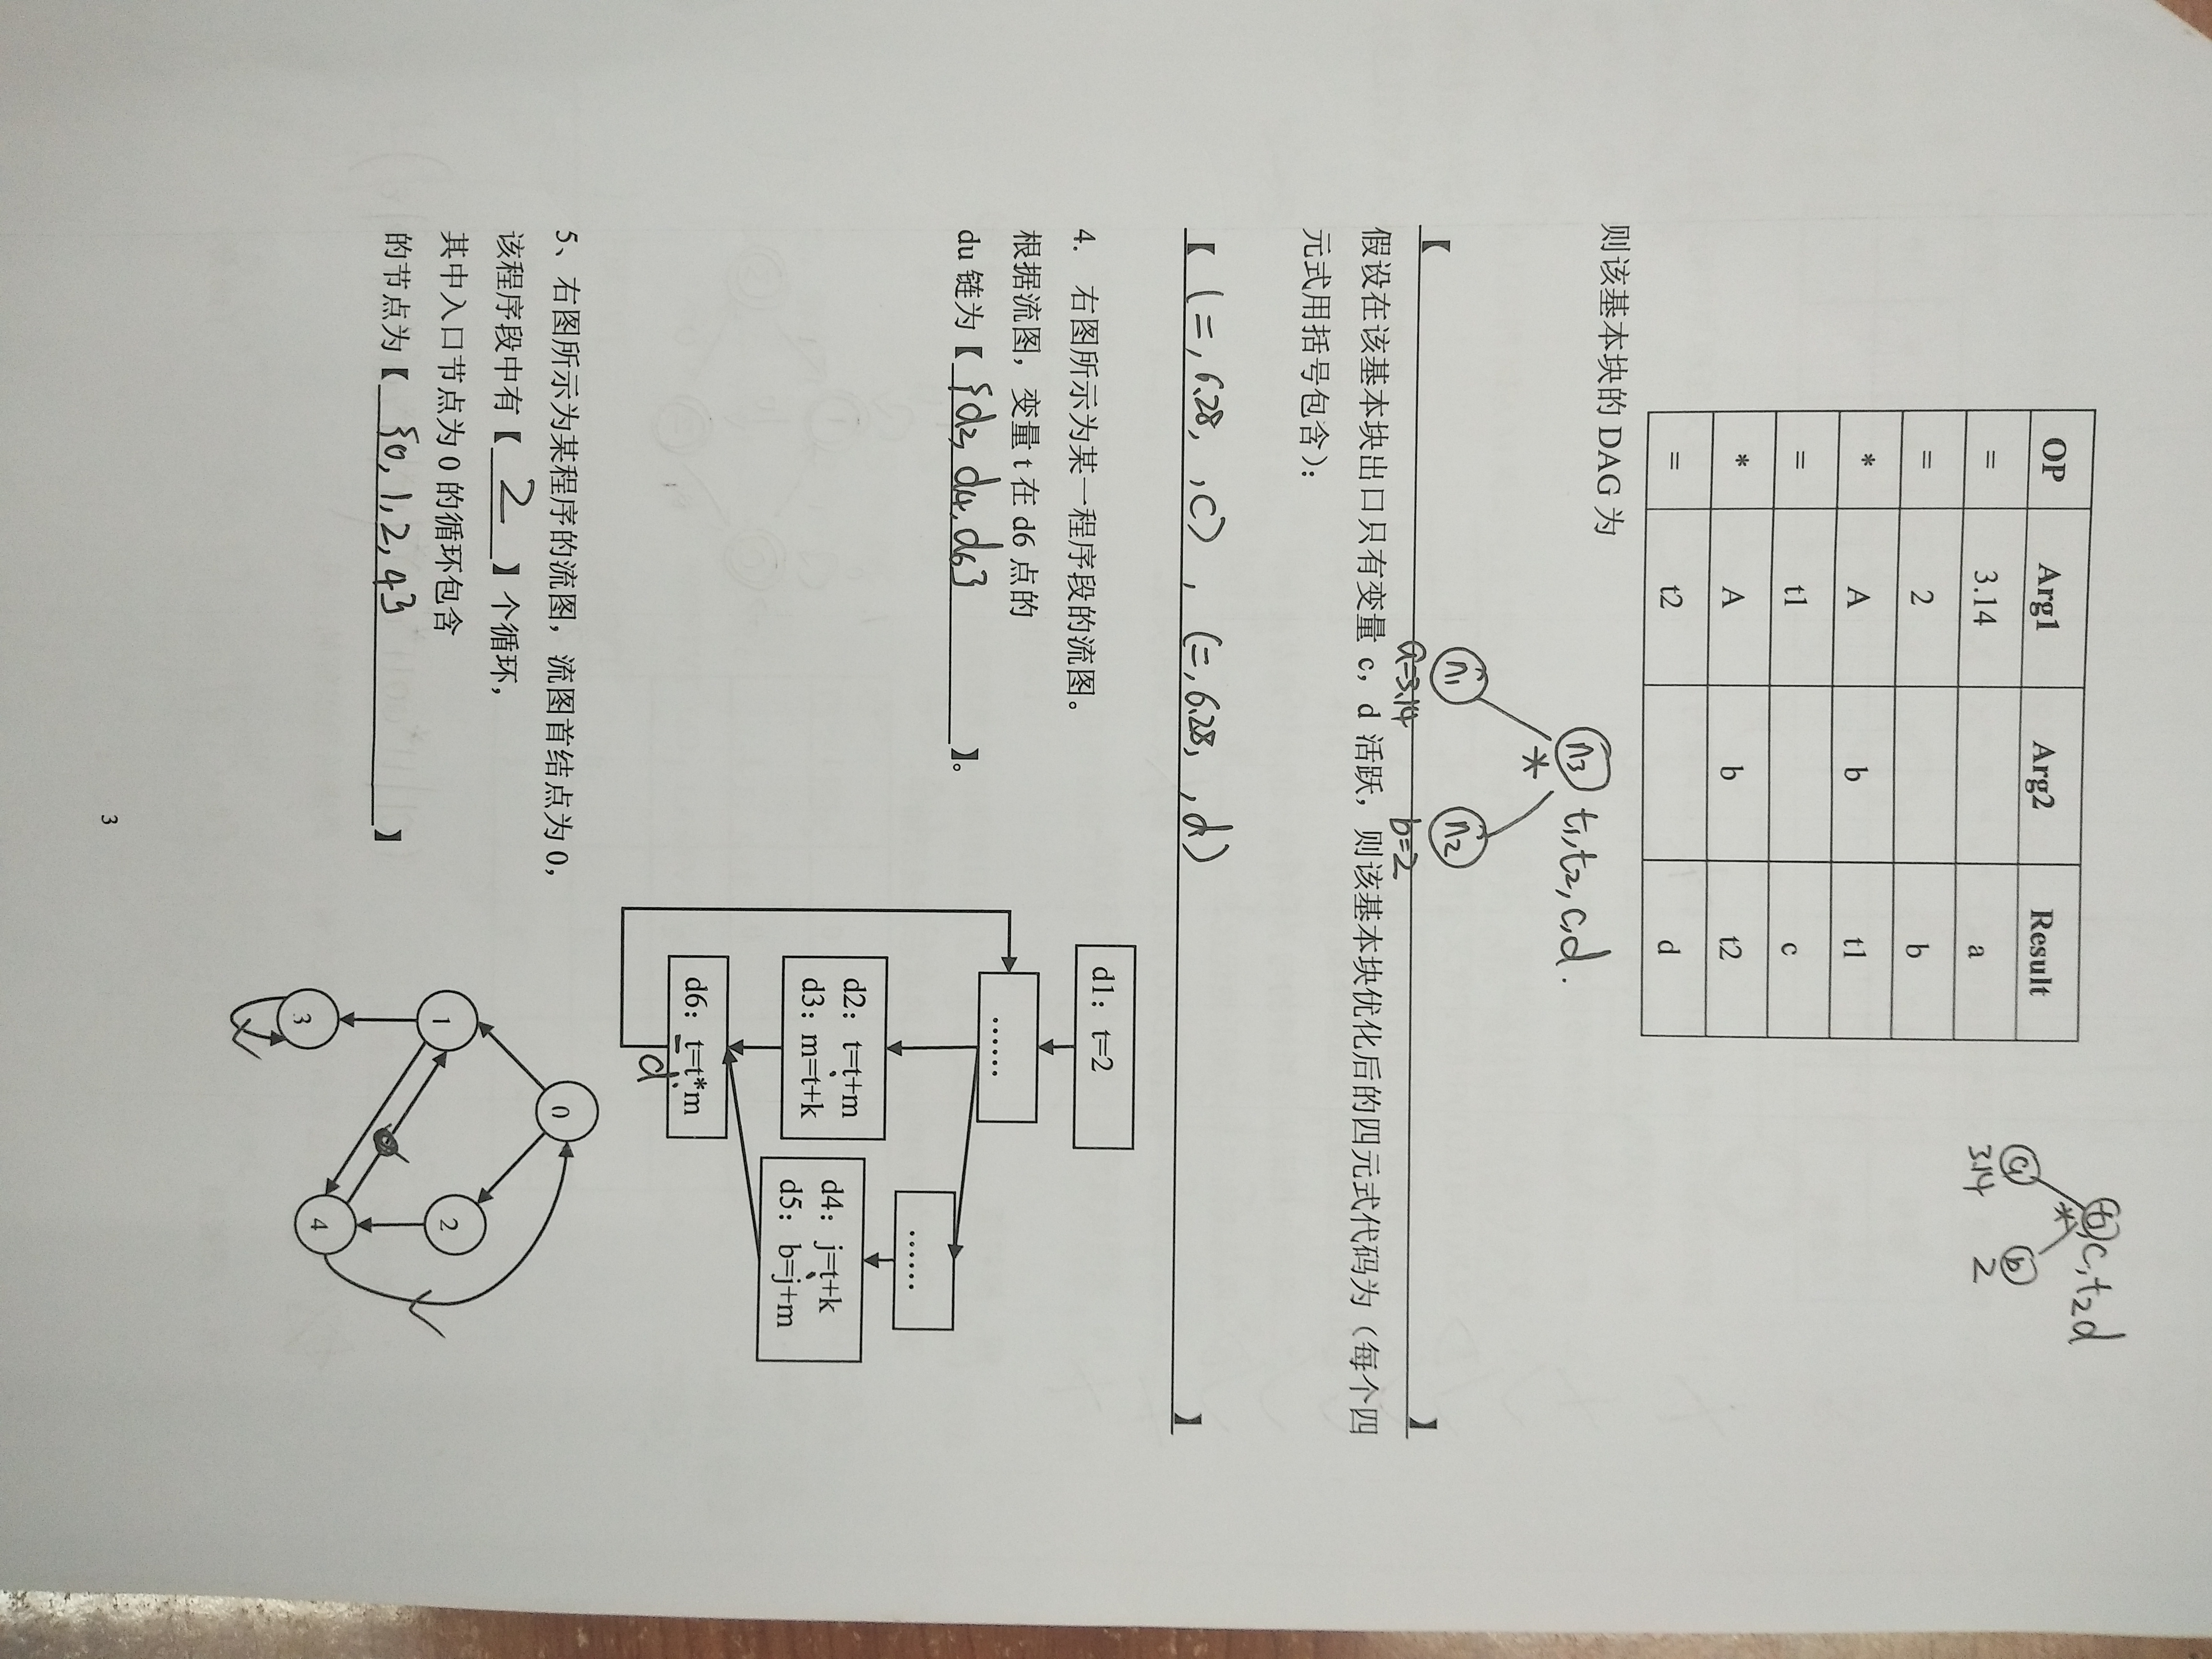 OP Arg1 Arg2 Result
= 3.14 a
= 2 b
* A b t1
= t1 c
* A b t2
= t2 d
c, t2 d
*
a b
3.14 2
则该基本块的 DAG 为
n3 t1, t2, c, d.
*
n1 n2
【 a=3.14 b=2 】
假设在该基本块出口只有变量 c，d 活跃，则该基本块优化后的四元式代码为（每个四
元式用括号包含）：
【 (=, 6.28, , C) , (=, 6.28, , d) 】
4. 右图所示为某一程序段的流图。
根据流图，变量 t 在 d6 点的
du 链为【 {d2, d4, d6} 】。
d1: t=2
……
……
d2: t=t+m
d3: m=t+k
d4: j=t+k
d5: b=j+m
d6: t=t*m
d
5、右图所示为某程序的流图，流图首结点为 0，
该程序段中有【 2 】个循环，
其中入口节点为 0 的循环包含
的节点为【 {0, 1, 2, 4} 】
0
1 2
3 4
3